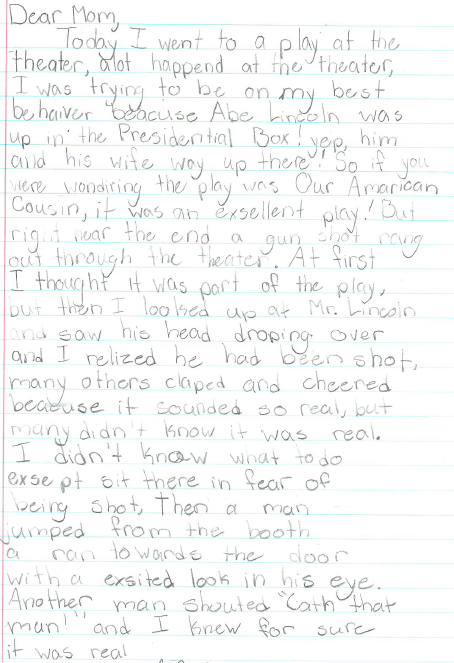 Dear Mom,
Today I went to a play at the
theater, alot happend at the theater,
I was trying to be on my best
behaiver beacuse Abe Lincoln was
up in the Presidential Box! yep, him
and his wife way up there! So if you
were wondiring the play was Our Amarican
Cousin, it was an exsellent play! But
right near the end a gun shot rang
out through the theater. At first
I thought it was part of the play,
but then I looked up at Mr. Lincoln
and saw his head droping over
and I relized he had been shot,
many others claped and cheered
beacuse it sounded so real, but
many didn't know it was real.
I didn't know what to do
exsept sit there in fear of
being shot, Then a man
jumped from the booth
a ran towards the door
with a exsited look in his eye.
Another man shouted "Cath that
man!" and I knew for sure
it was real